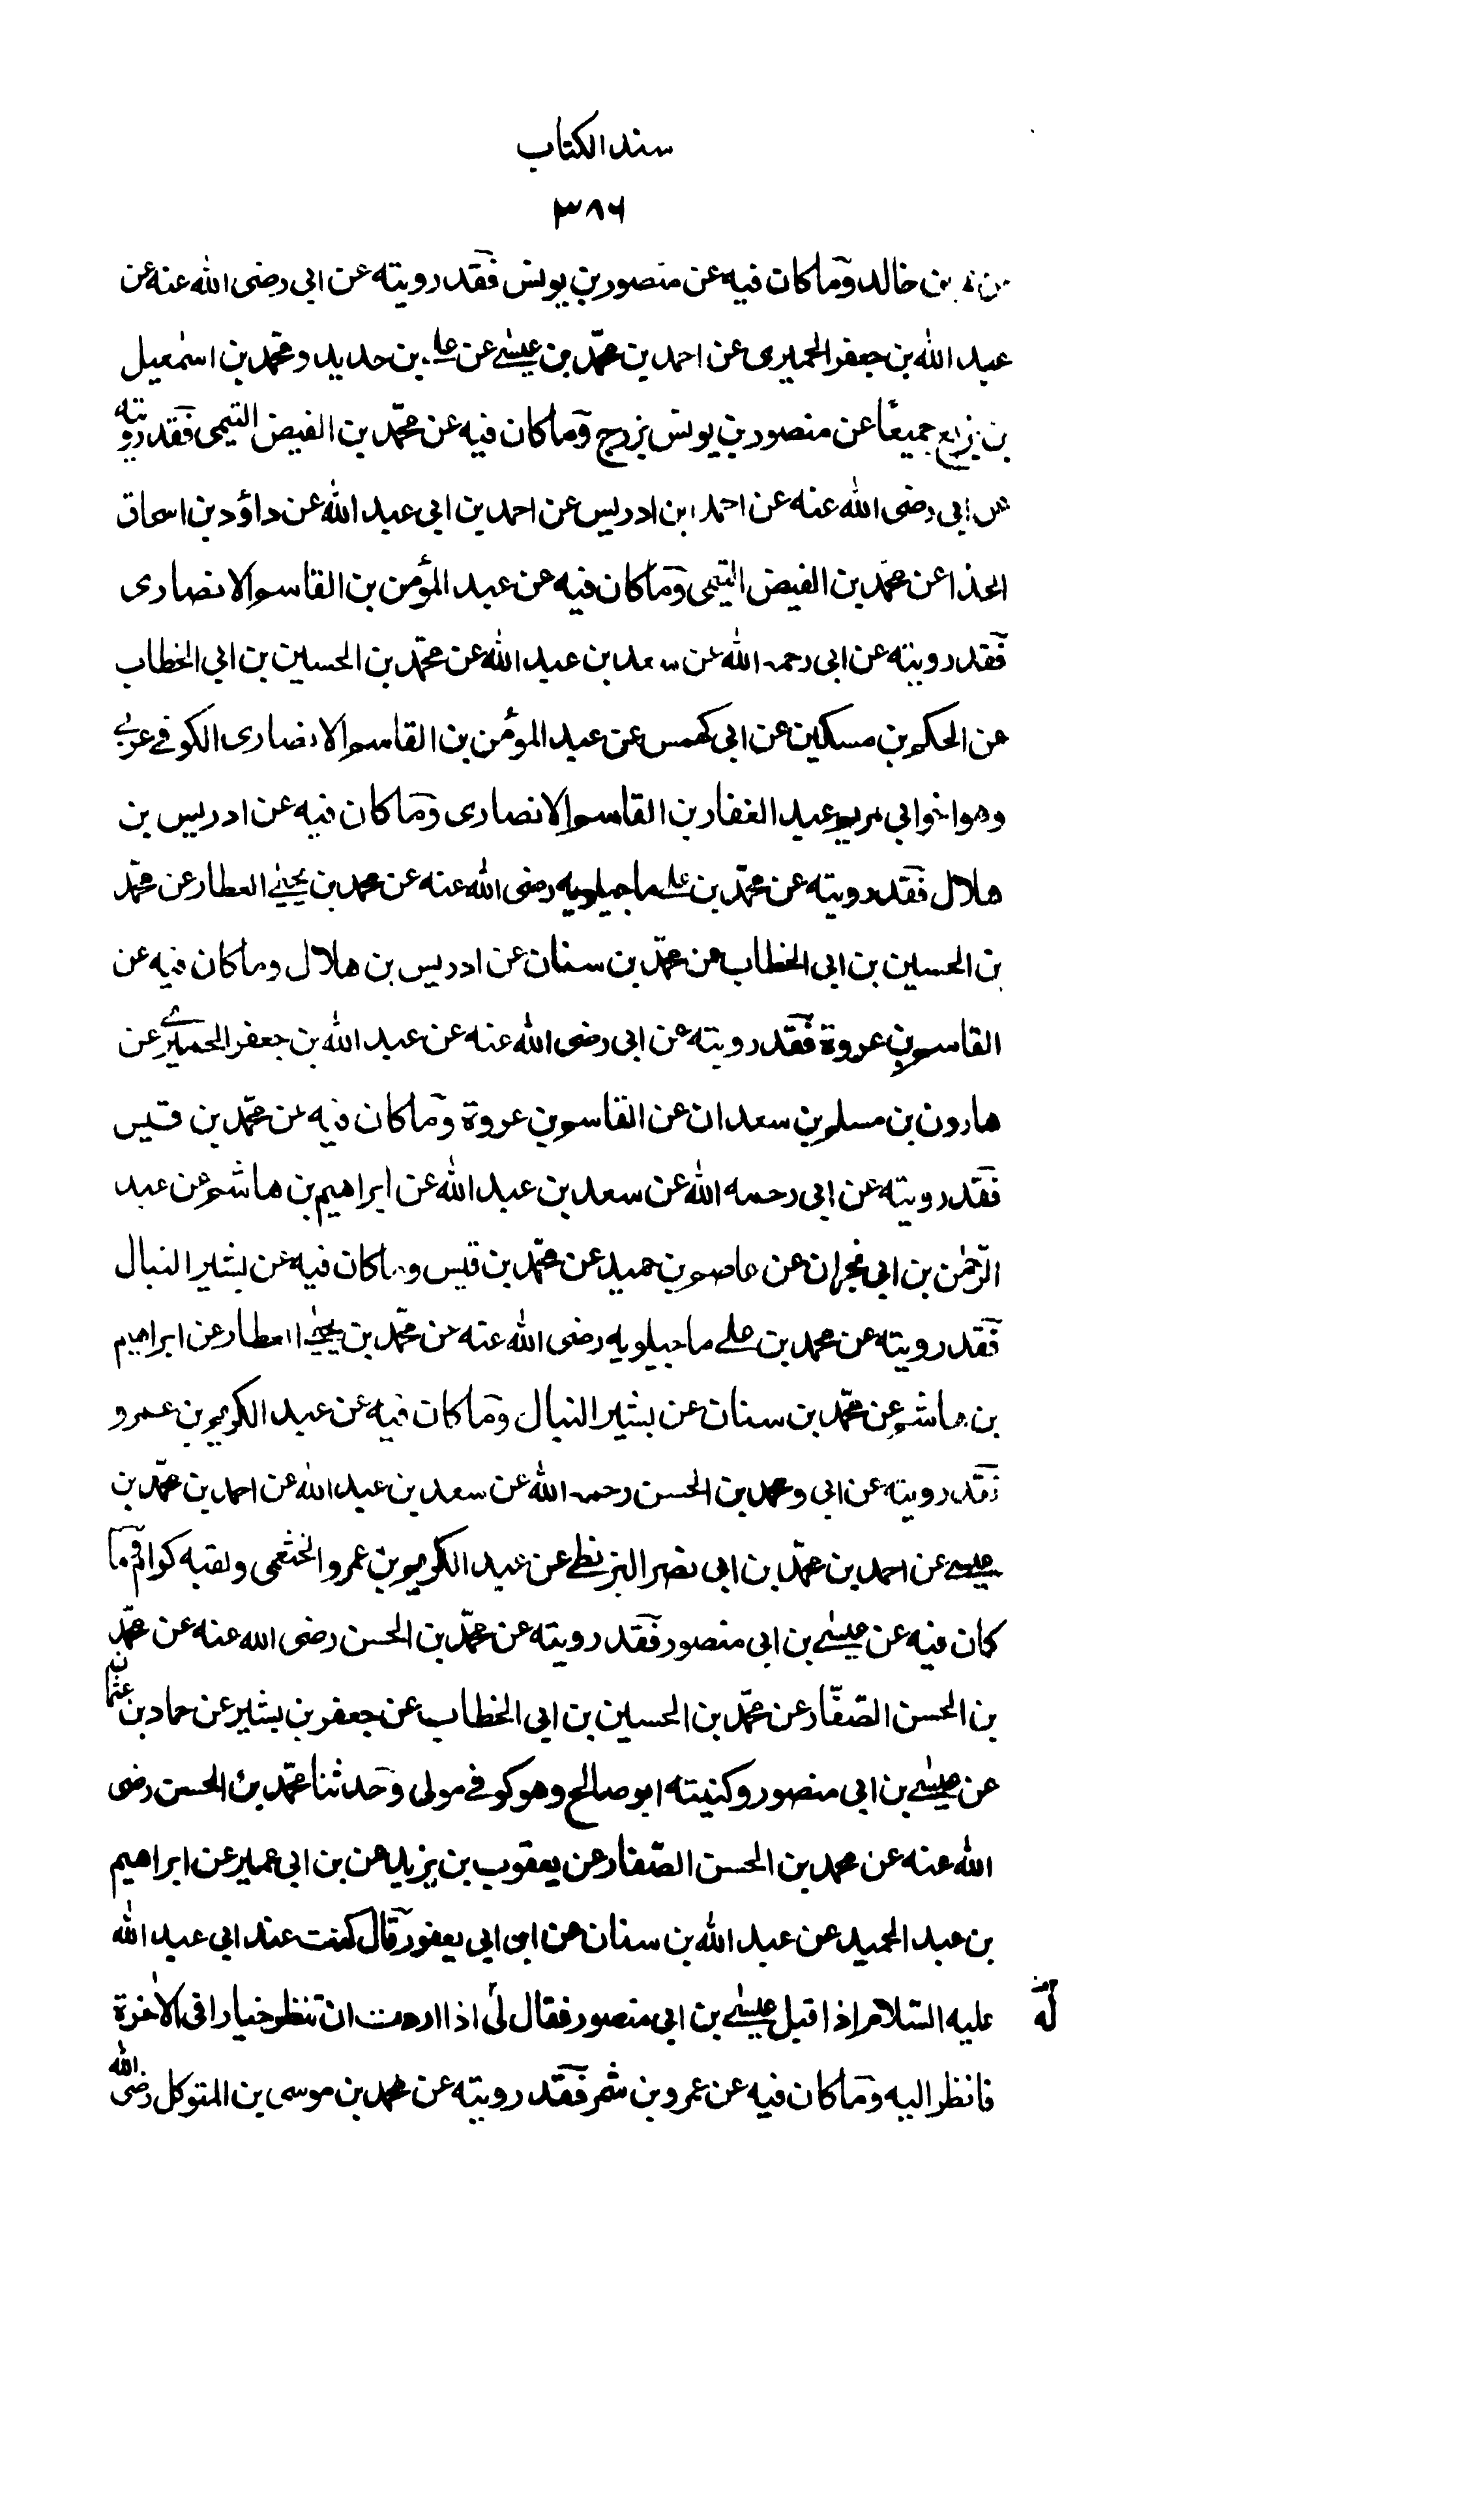 سند الكتاب
٣٨٦
بن خالد وما كان فيه عن منصور بن يونس فقد رويته عن ابى رضى الله عنه عن
عبد الله بن جعفر الحميرى عن احمد بن محمّد بن عيسى عن على بن حديد ومحمّد بن اسمٰعيل
بن بزيع جميعًا عن منصور بن يونس بزرج وما كان فيه عن محمّد بن الفيض التيمى فقد رويته
عن ابى رضى الله عنه عن احمد ابن ادريس عن احمد بن ابى عبد الله عن داؤد بن اسحاق
الحذا عن محمّد بن الفيض التيمى وما كان فيه عن عبد المؤمن بن القاسم الانصارى
فقد رويته عن ابى رحمه الله عن سعد بن عبد الله عن محمّد بن الحسين بن ابى الخطاب
عن الحكم بن مسكين عن ابى كهمس عن عبد المؤمن بن القاسم الانصارى الكوفى عربى
وهو اخو ابى مريم عبد الغفار بن القاسم الانصارى وما كان فيه عن ادريس بن
هلال فقد رويته عن محمّد بن على ماجيلويه رضى الله عنه عن محمد بن يحيىٰ العطار عن محمّد
بن الحسين بن ابى الخطاب عن محمّد بن سنان عن ادريس بن هلال وما كان فيه عن
القاسم بن عروة فقد رويته عن ابى رضى الله عنه عن عبد الله بن جعفر الحميرى عن
هارون بن مسلم بن سعدان عن القاسم بن عروة وما كان فيه عن محمّد بن قيس
فقد رويته عن ابى رحمه الله عن سعد بن عبد الله عن ابراهيم بن هاشم عن عبد
الرّحمٰن بن ابى نجران عن عاصم بن حميد عن محمّد بن قيس وما كان فيه عن بشير النبال
فقد رويته عن محمد بن على ماجيلويه رضى الله عنه عن محمّد بن يحيىٰ العطار عن ابراهيم
بن هاشم عن محمّد بن سنان عن بشير النبال وما كان فيه عن عبد الكريم بن عمرو
فقد رويته عن ابى ومحمد بن الحسن رحمه الله عن سعد بن عبد الله عن احمد بن محمّد بن
عيسى عن احمد بن محمّد بن ابى نصر البزنطى عن عبد الكريم بن عمرو الخثعمى ولقبه كرام وما
كان فيه عن عيسٰى بن ابى منصور فقد رويته عن محمّد بن الحسن رضى الله عنه عن محمّد
بن الحسن الصّفّار عن محمّد بن الحسين بن ابى الخطاب عن جعفر بن بشير عن حماد بن عثمان
عن عيسٰى بن ابى منصور وكنيته ابو صالح وهو كوفى مولى وحدثنا محمّد بن الحسن رضى
الله عنه عن محمد بن الحسن الصّفار عن يعقوب بن يزيد عن بن ابى عمير عن ابراهيم
بن عبد الحميد عن عبد الله بن سنان عن ابن ابى يعفور قال كنت عند ابى عبد الله
عليه السّلام اذا اقبل عيسٰى بن ابى منصور فقال لى اذا اردت ان تنظر خيارا فى الاخرة
فانظر اليه وما كان فيه عن عمرو بن شمر فقد رويته عن محمد بن موسى بن المتوكل رضى الله